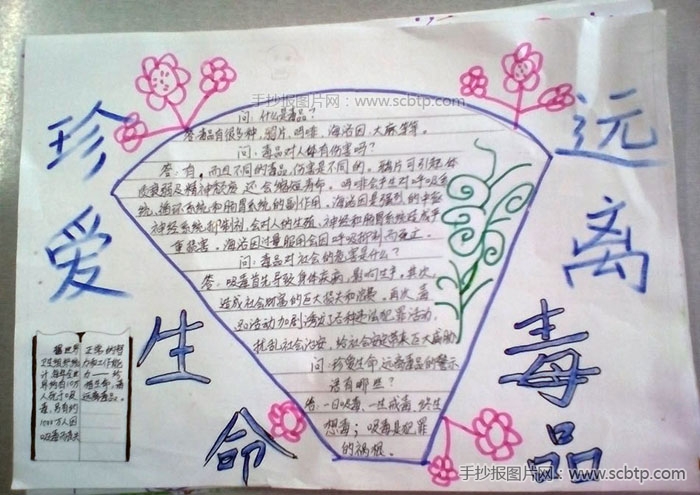 手抄报图片网:www.scbtp.com
珍爱生命
远离毒品
问:什么是毒品?
答:毒品有很多种,鸦片、吗啡、海洛因、大麻等等。
问:毒品对人体有伤害吗?
答:有,而且不同的毒品,伤害是不同的。鸦片可引起体
质衰弱及精神颓废,还会缩短寿命。吗啡会产生对呼吸系
统、循环系统和肠胃系统的副作用。海洛因是强烈的中枢
神经系统抑制剂,会对人的生殖、神经和肠胃系统造成严
重损害。海洛因过量服用会因呼吸抑制而死亡。
问:毒品对社会的危害是什么?
答:吸毒首先导致身体疾病,影响生产,其次,
造成社会财富的巨大损失和浪费,再次,毒
品活动加剧诱发了各种违法犯罪活动,
扰乱社会治安,给社会安定带来巨大威胁
问:珍爱生命,远离毒品的警示
语有哪些?
答:一日吸毒,一生戒毒,终生
想毒;吸毒是犯罪
的祸根。
据世界
卫生组织统
计,每年全世
界约有10万
人死于吸
毒,另有约
1000万人因
吸毒而丧失
正常的智
力和工作能
力——珍
惜生命,请
远离毒品。
手抄报图片网:www.scbtp.com